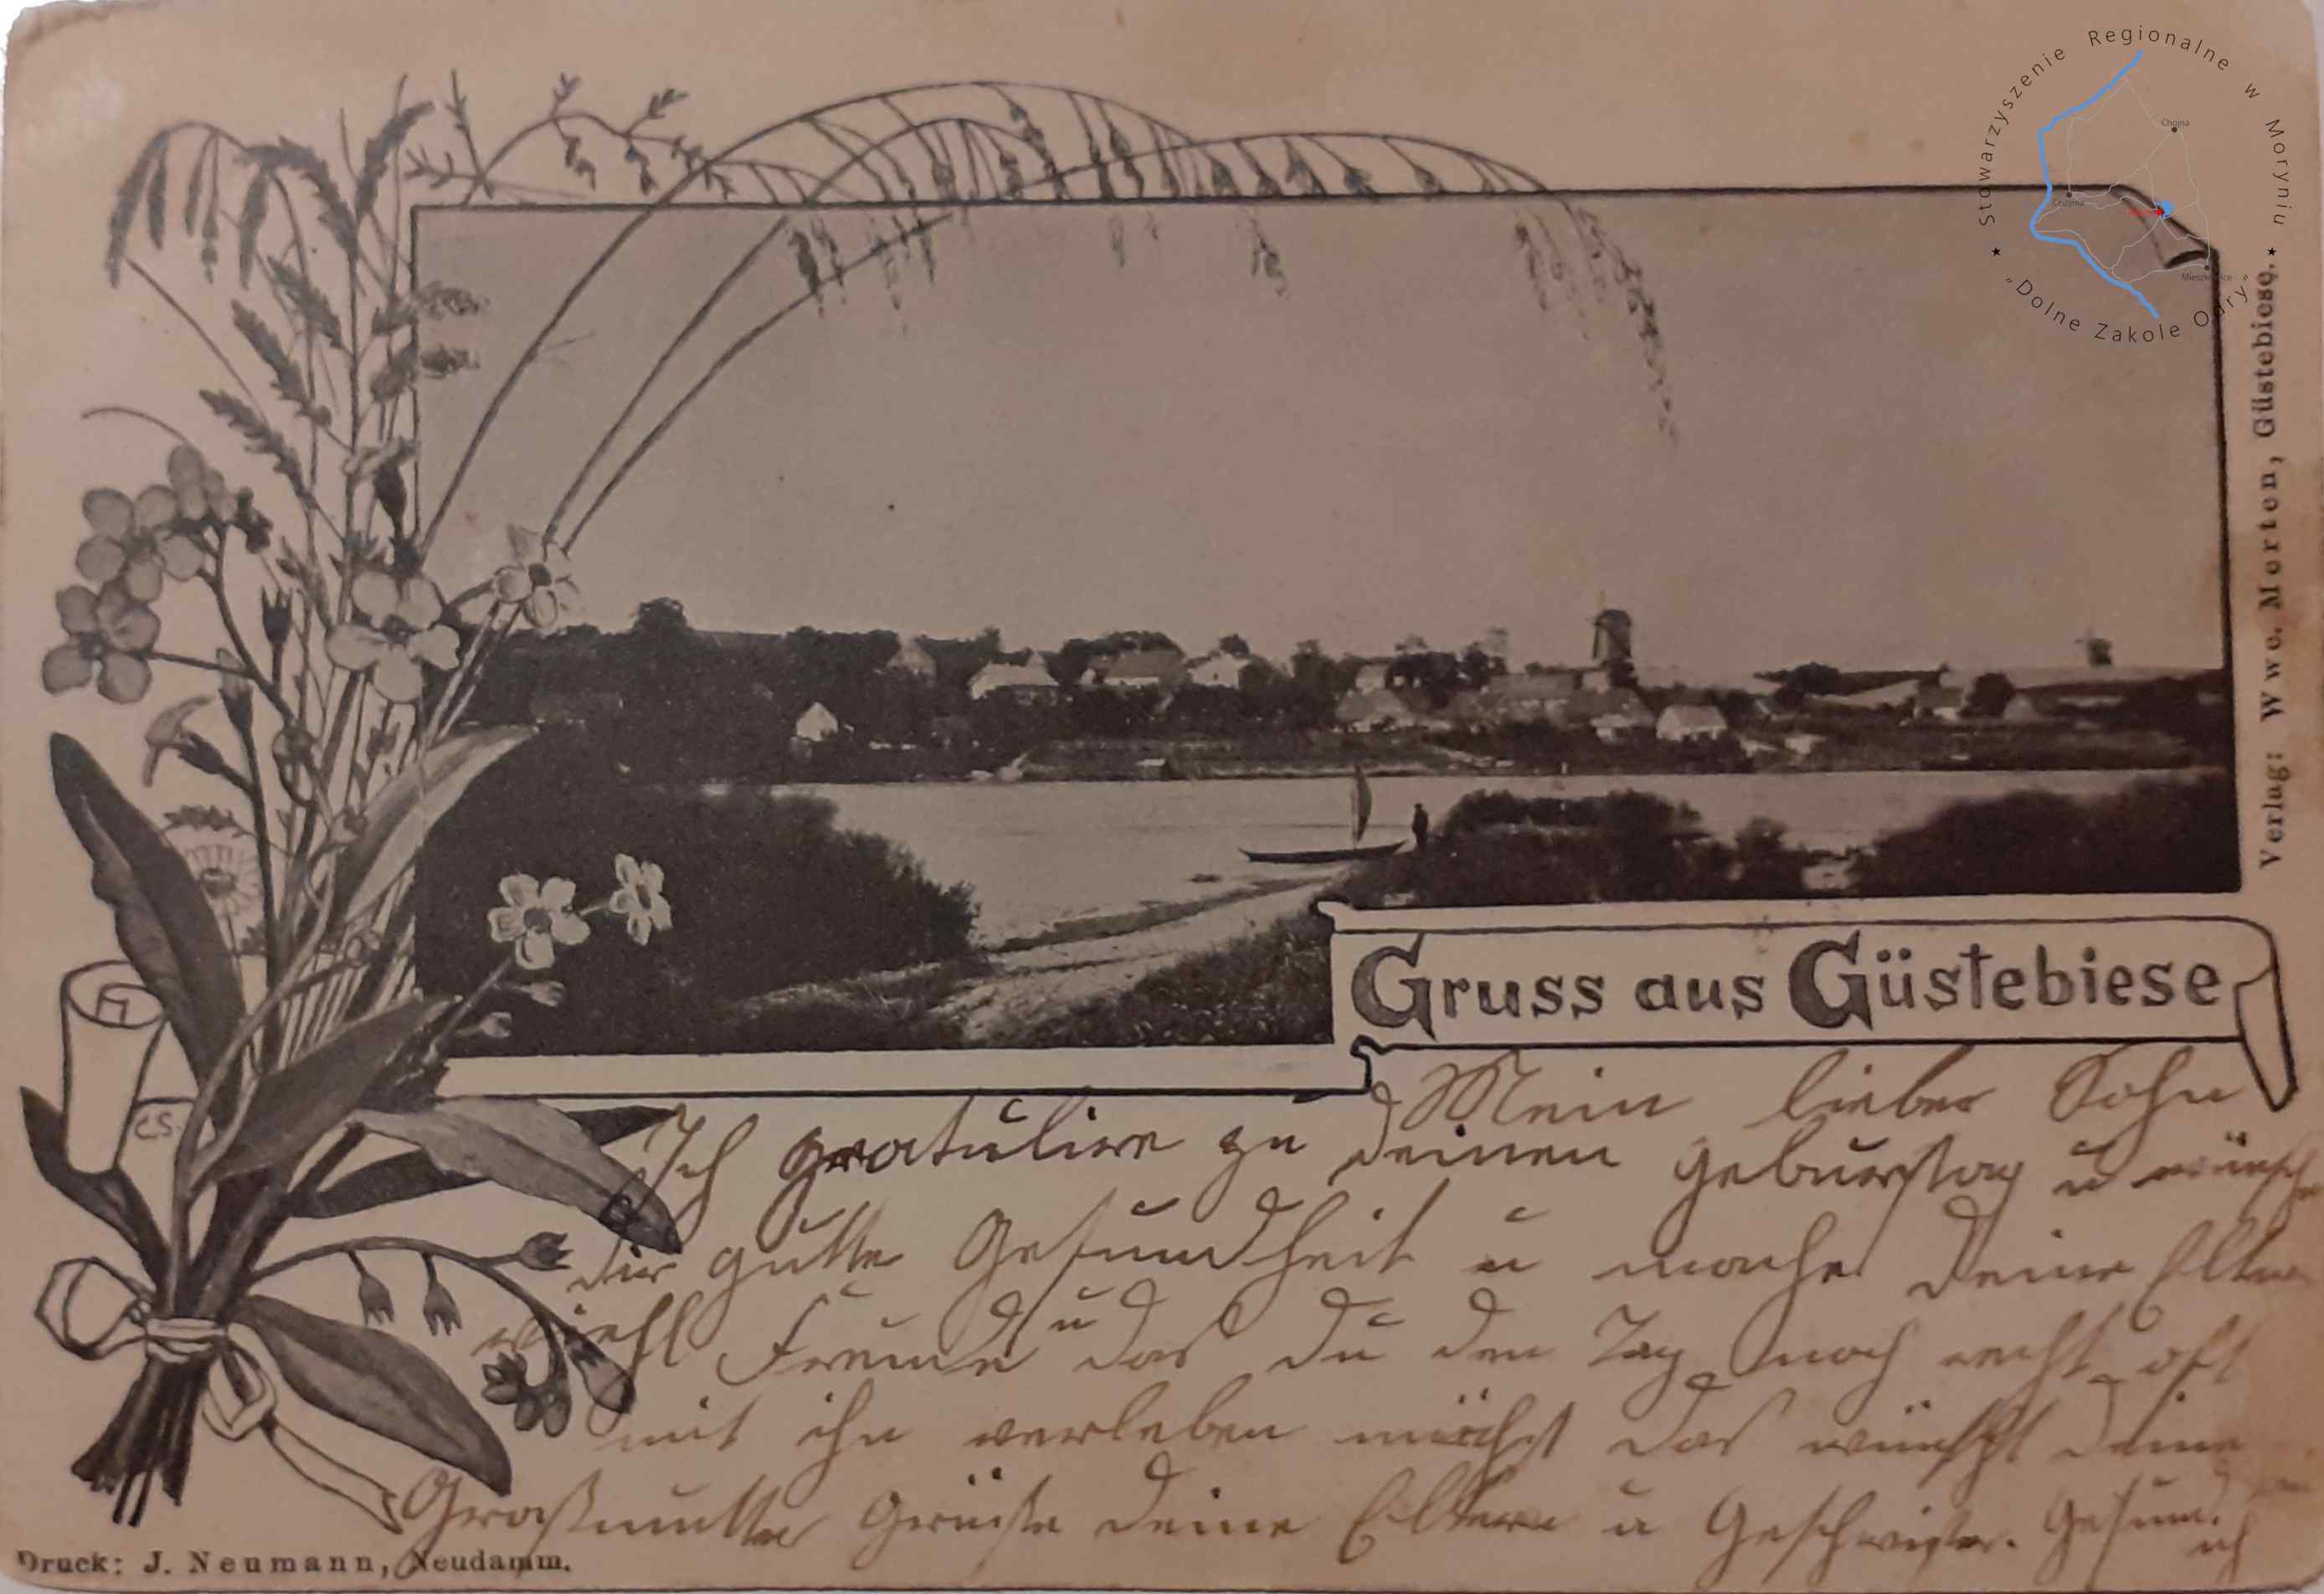 Stowarzyszenie Regionalne w Moryniu
"Dolne Zakole Odry"
Chojna
Cedynia
Mieszkowice
Verlag: Wwe. Merten, Güstebiese.
Gruss aus Güstebiese
CS.
Mein lieber Sohn
Ich gratulire zu deinen geburstag u wünsch
dir gutte Gesundheit u mache deine Eltern
Freude das du den Tag noch recht oft
mit ihn verleben möchst das wünscht deine
Großmutter Grüße deine Eltern u Geschwister. Gesund.
ich
Druck: J. Neumann, Neudamm.